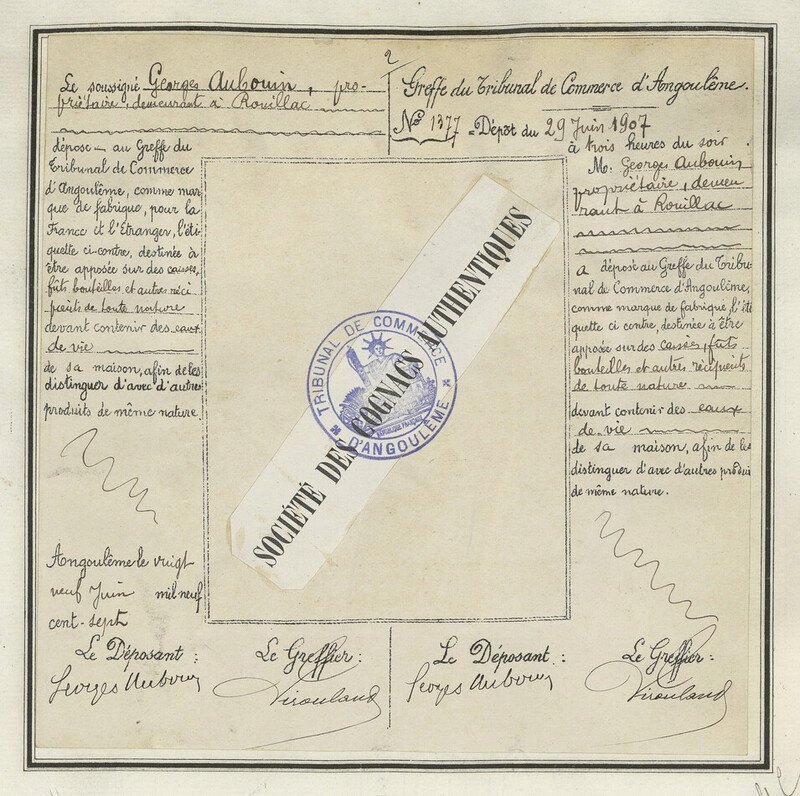 2
Le soussigné Georges Aubouin, pro-
priétaire, demeurant à Rouillac
dépose au Greffe du
Tribunal de Commerce
d'Angoulême, comme mar
que de fabrique, pour la
France et l'Étranger, l'éti
quette ci-contre, destinée à
être apposée sur des caisses,
fûts bouteilles et autres réci
pients de toute nature
devant contenir des eaux
de vie
de sa maison, afin de les
distinguer d'avec d'autres
produits de même nature.
Angoulême le vingt
neuf Juin mil neuf
cent-sept
Le Déposant :
Georges Aubouin
Le Greffier :
SOCIÉTÉ DES COGNACS AUTHENTIQUES
TRIBUNAL DE COMMERCE
D'ANGOULÊME
RÉPUBLIQUE FRANÇAISE
Greffe du Tribunal de Commerce d'Angoulême.
No 1377 = Dépôt du 29 Juin 1907
à trois heures du soir
M. Georges Aubouin
propriétaire, demeu
rant à Rouillac
a déposé au Greffe du Tribu-
nal de Commerce d'Angoulême,
comme marque de fabrique, l'éti
quette ci contre, destinée à être
apposée sur des caisses, fûts
bouteilles et autres récipients
de toute nature
devant contenir des eaux
de vie
de sa maison, afin de les
distinguer d'avec d'autres produi
de même nature.
Le Déposant :
Georges Aubouin
Le Greffier :